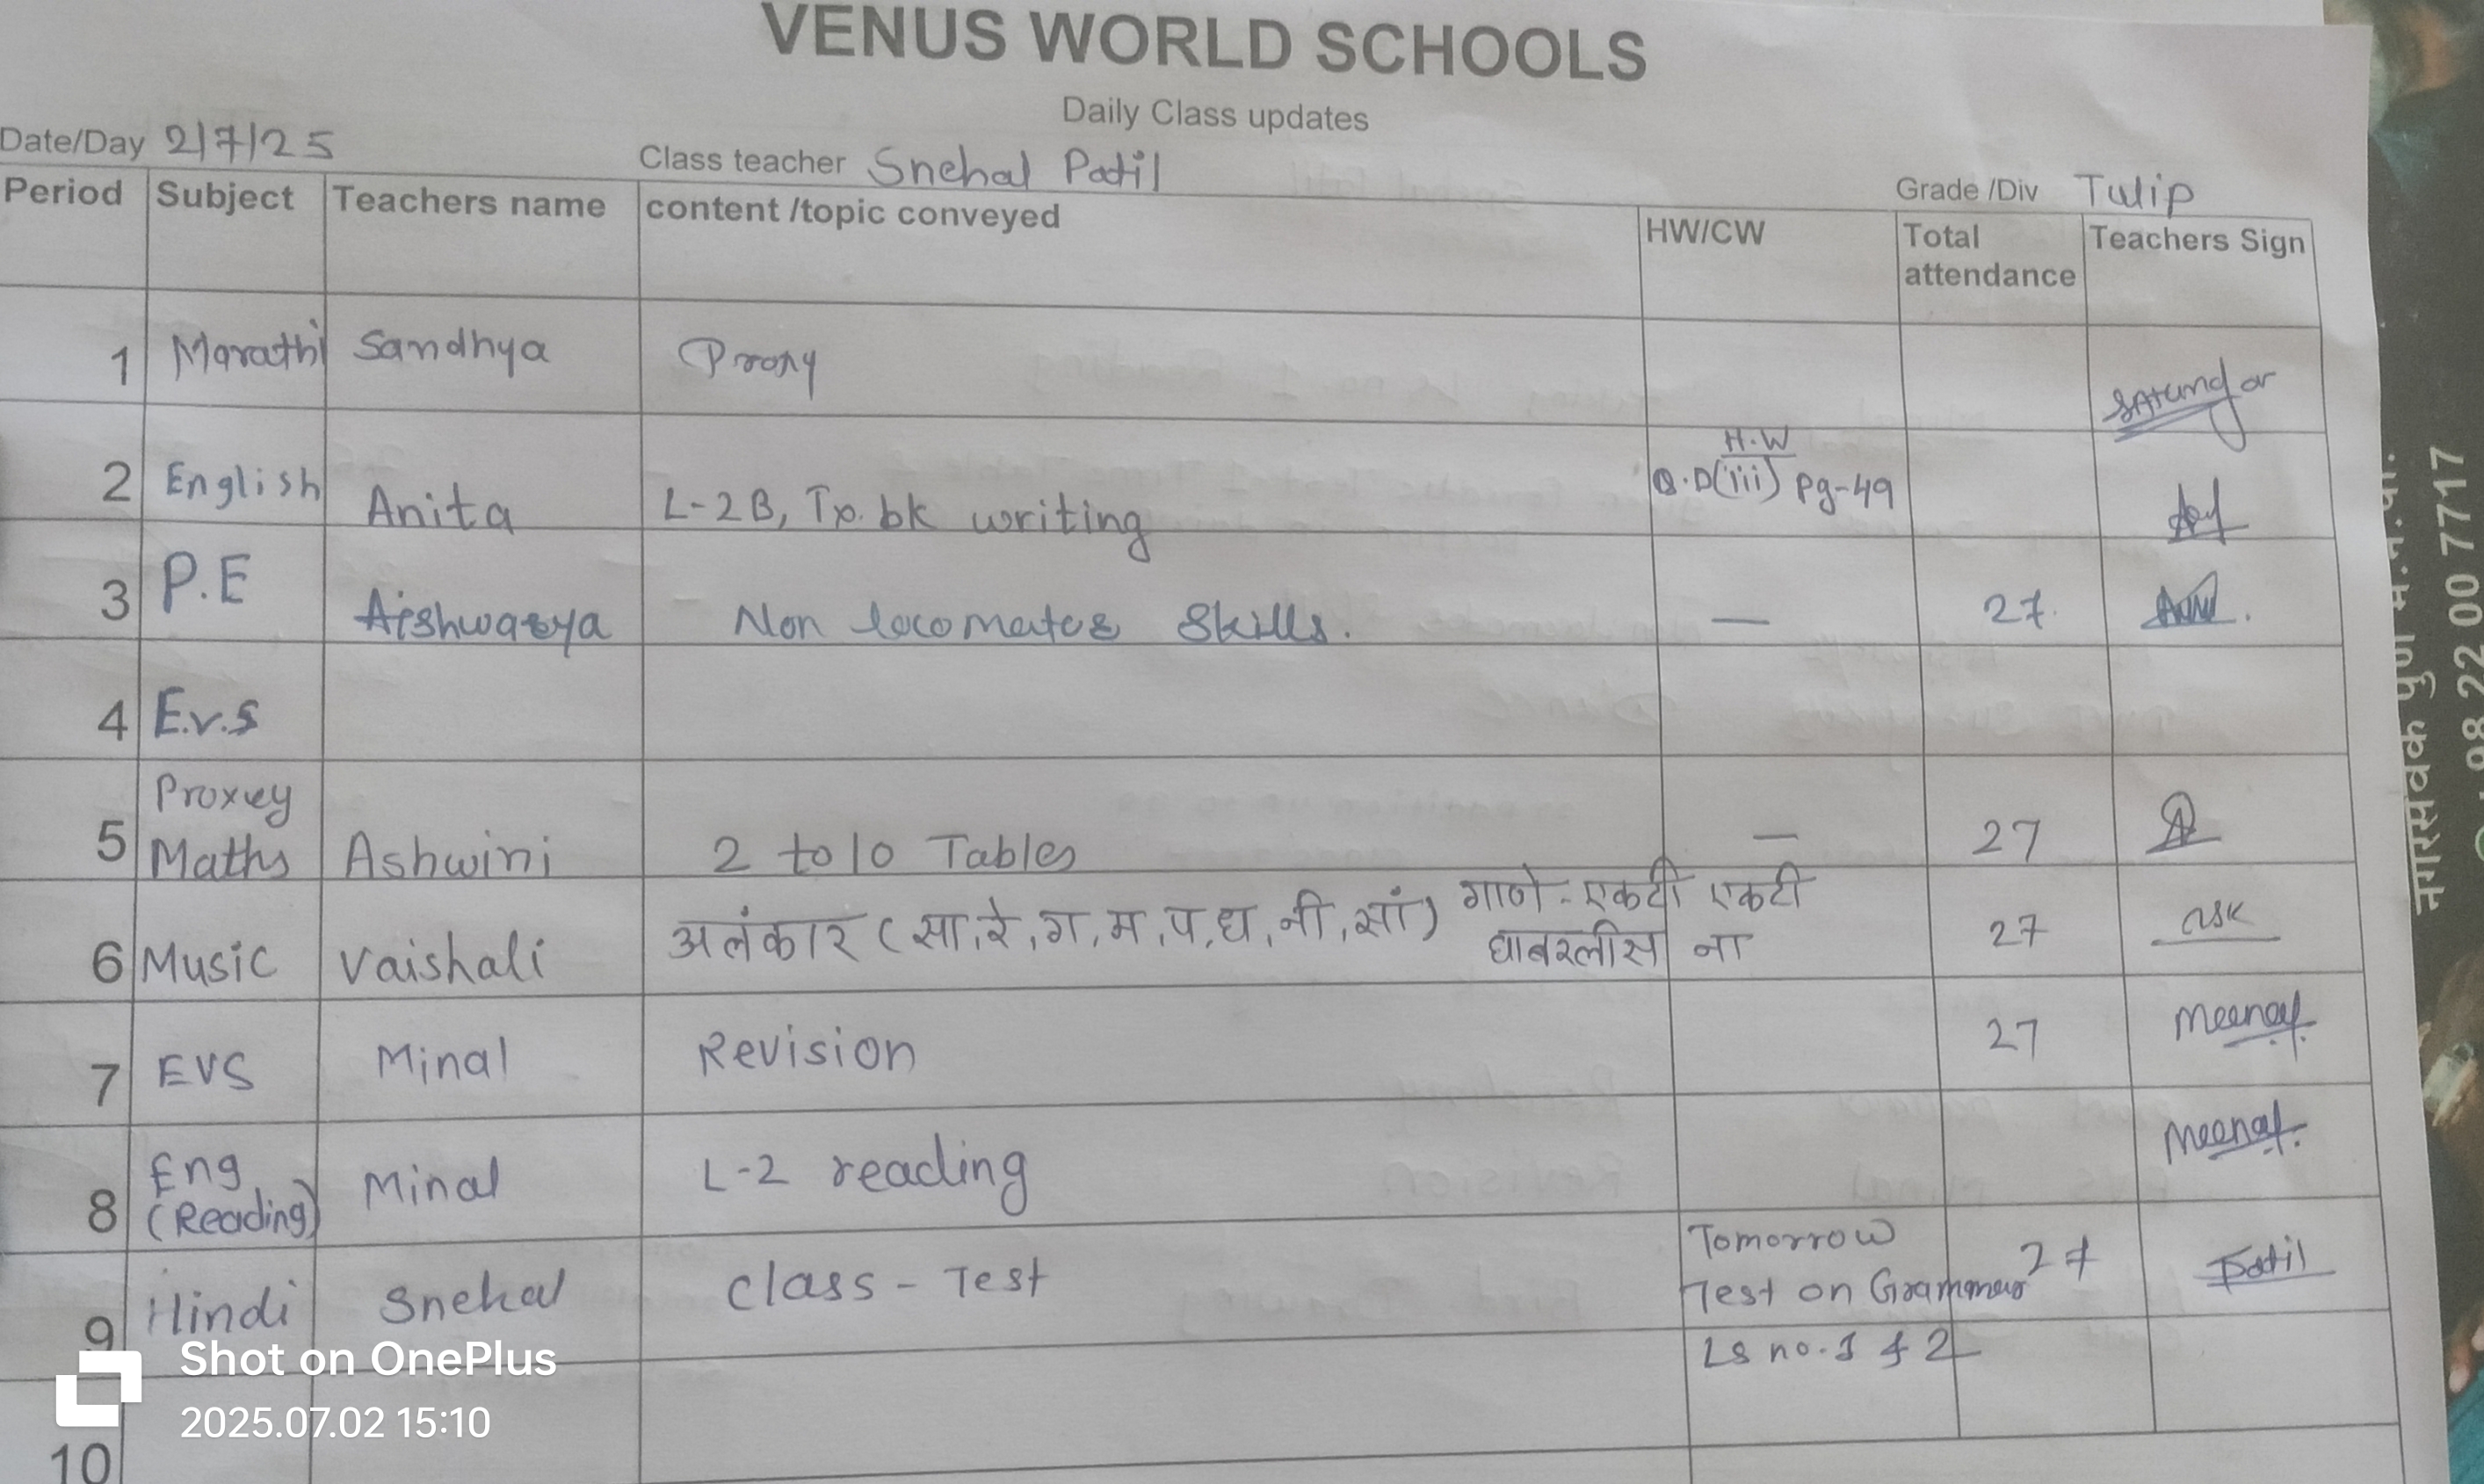 VENUS WORLD SCHOOLS
Daily Class updates
Date/Day 2/7/25 Class teacher Snehal Patil Grade /Div Tulip
Period Subject Teachers name content /topic conveyed HW/CW Total attendance Teachers Sign
1 Marathi Sandhya Proxy
2 English Anita L-2B, Tx. bk writing H.W Q.D(iii) Pg-49
3 P.E Aishwarya Non locomotor Skills. — 27.
4 E.v.s
5 Proxey Maths Ashwini 2 to 10 Tables — 27
6 Music Vaishali अलंकार (सा,रे,ग,म,प,ध,नी,सां) गाणे - एकटी एकटी घाबरलीस ना 27
7 EVS Minal Revision 27 Meenal
8 Eng (Reading) Minal L-2 reading Meenal.
9 Hindi Snehal Class - Test Tomorrow Test on Grammar 27 Patil
Ls no. 1 & 2
10
Shot on OnePlus
2025.07.02 15:10
98 22 00 7717
नगरसेवक पुणे म.न.पा.